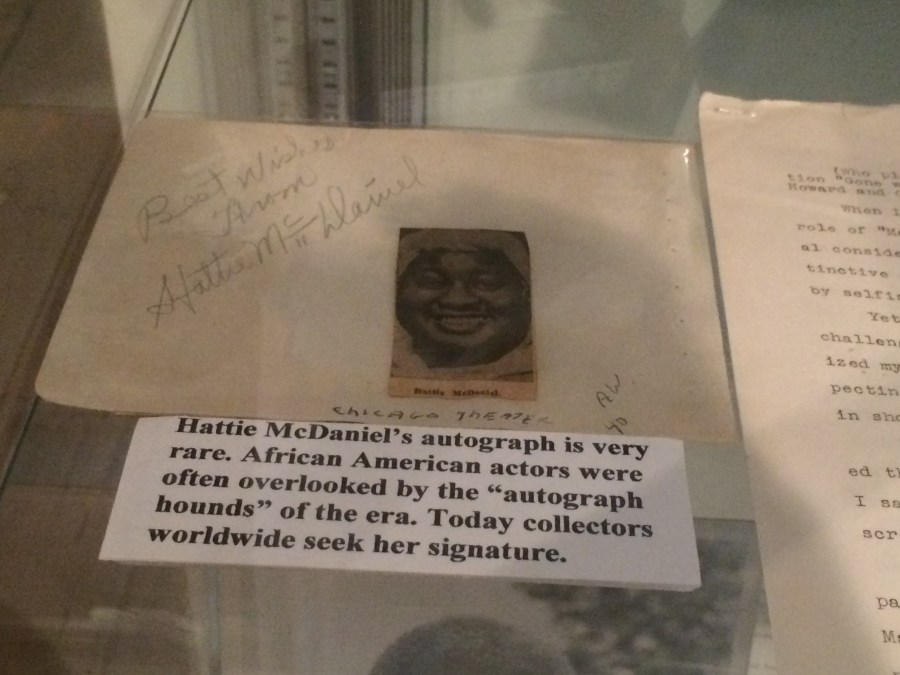 Best Wishes
from
Hattie McDaniel
Hattie McDaniel.
CHICAGO THEATER
40
Hattie McDaniel's autograph is very
rare. African American actors were
often overlooked by the “autograph
hounds” of the era. Today collectors
worldwide seek her signature.
(Who pl
tion "Gone w
Howard and
When I
role of "M
al conside
tinctive
by selfis
Yet
challen
ized my
pectin
in sho
ed t
I sa
scr
pa
Ma